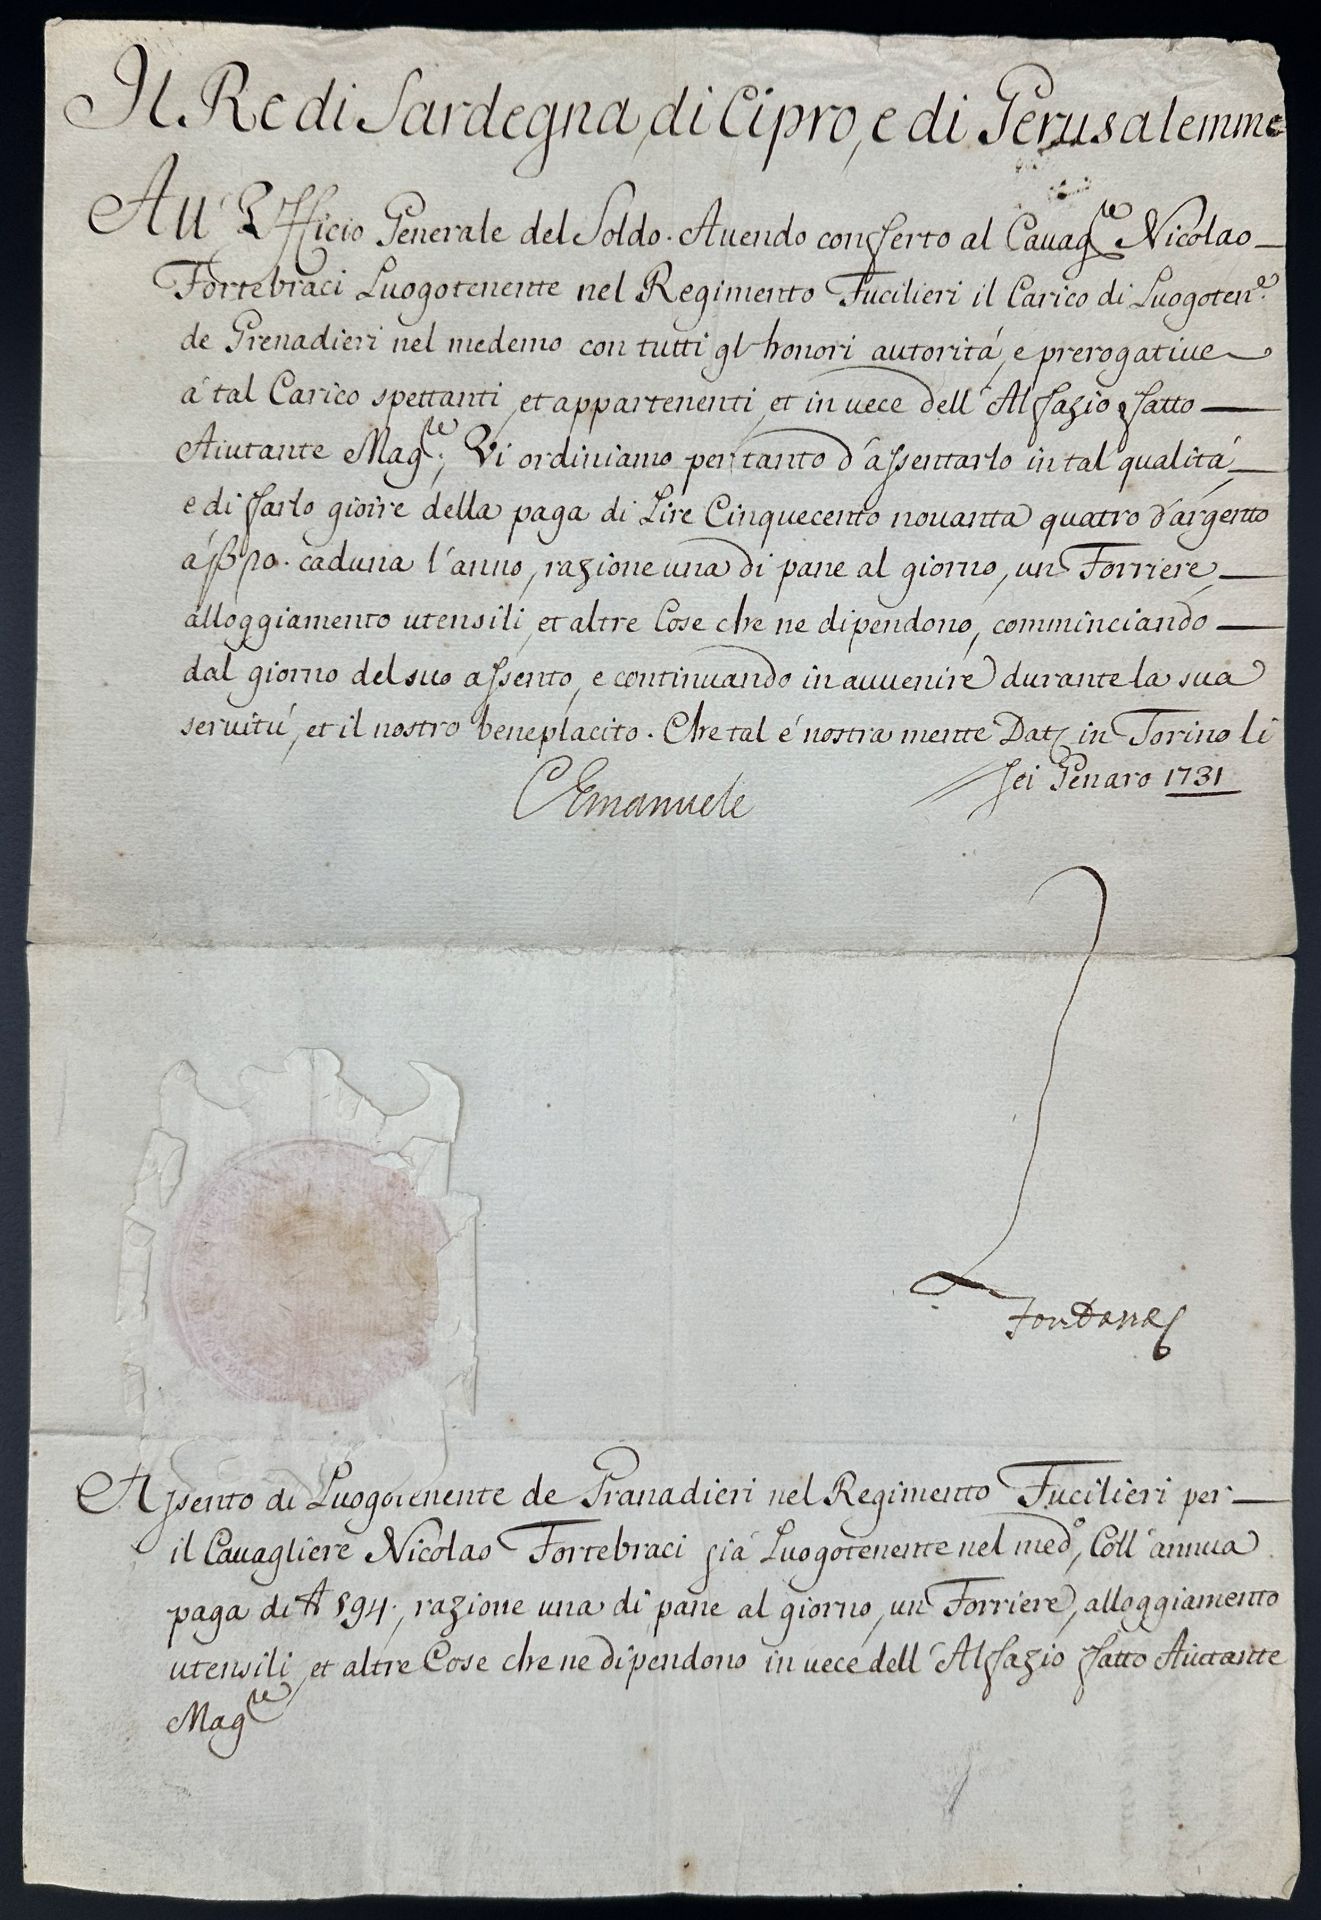 Il Re di Sardegna, di Cipro, e di Gerusalemme
All' Ufficio Generale del Soldo. Auendo conferto al Cauag.re Nicolao
Fortebraci Luogotenente nel Regimento Fucilieri il Carico di Luogoten.e
de Grenadieri nel medemo con tutti gl' honori autorità, e prerogatiue
à tal Carico spettanti, et appartenenti, et in uece dell' Alfazio fatto
Aiutante Mag.re; Vi ordiniamo pertanto d'assentarlo in tal qualità,
e di farlo gioire della paga di Lire Cinquecento nouanta quatro d'argento
caduna l'anno, razione una di pane al giorno, un Forriere,
alloggiamento utensili, et altre Cose che ne dipendono, comminciando
dal giorno del suo assento, e continuando in auuenire durante la sua
seruitù, et il nostro beneplacito. Che tal é nostra mente Dat. in Torino li
sei Genaro 1731
CEmanuele
Fontana
Assento di Luogotenente de Granadieri nel Regimento Fucilieri per
il Cauagliere Nicolao Fortebraci già Luogotenente nel med.o, Coll' annua
paga di 594., razione una di pane al giorno, un Forriere, alloggiamento
utensili, et altre Cose che ne dipendono in uece dell' Alfazio fatto Aiutante
Mag.re